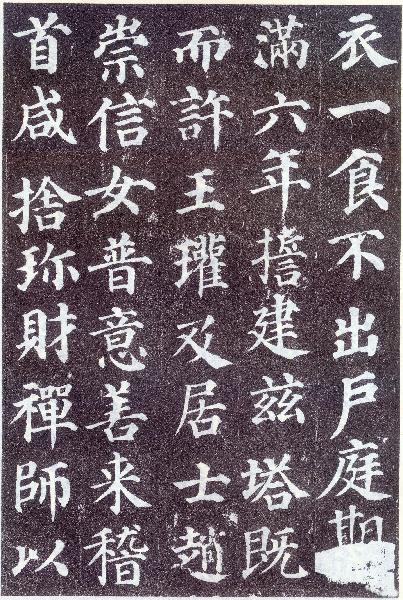 衣一食不出戶庭期
滿六年誓建茲塔既
而許王瓘及居士趙
崇信女普意善来稽
首咸捨珎財禪師以